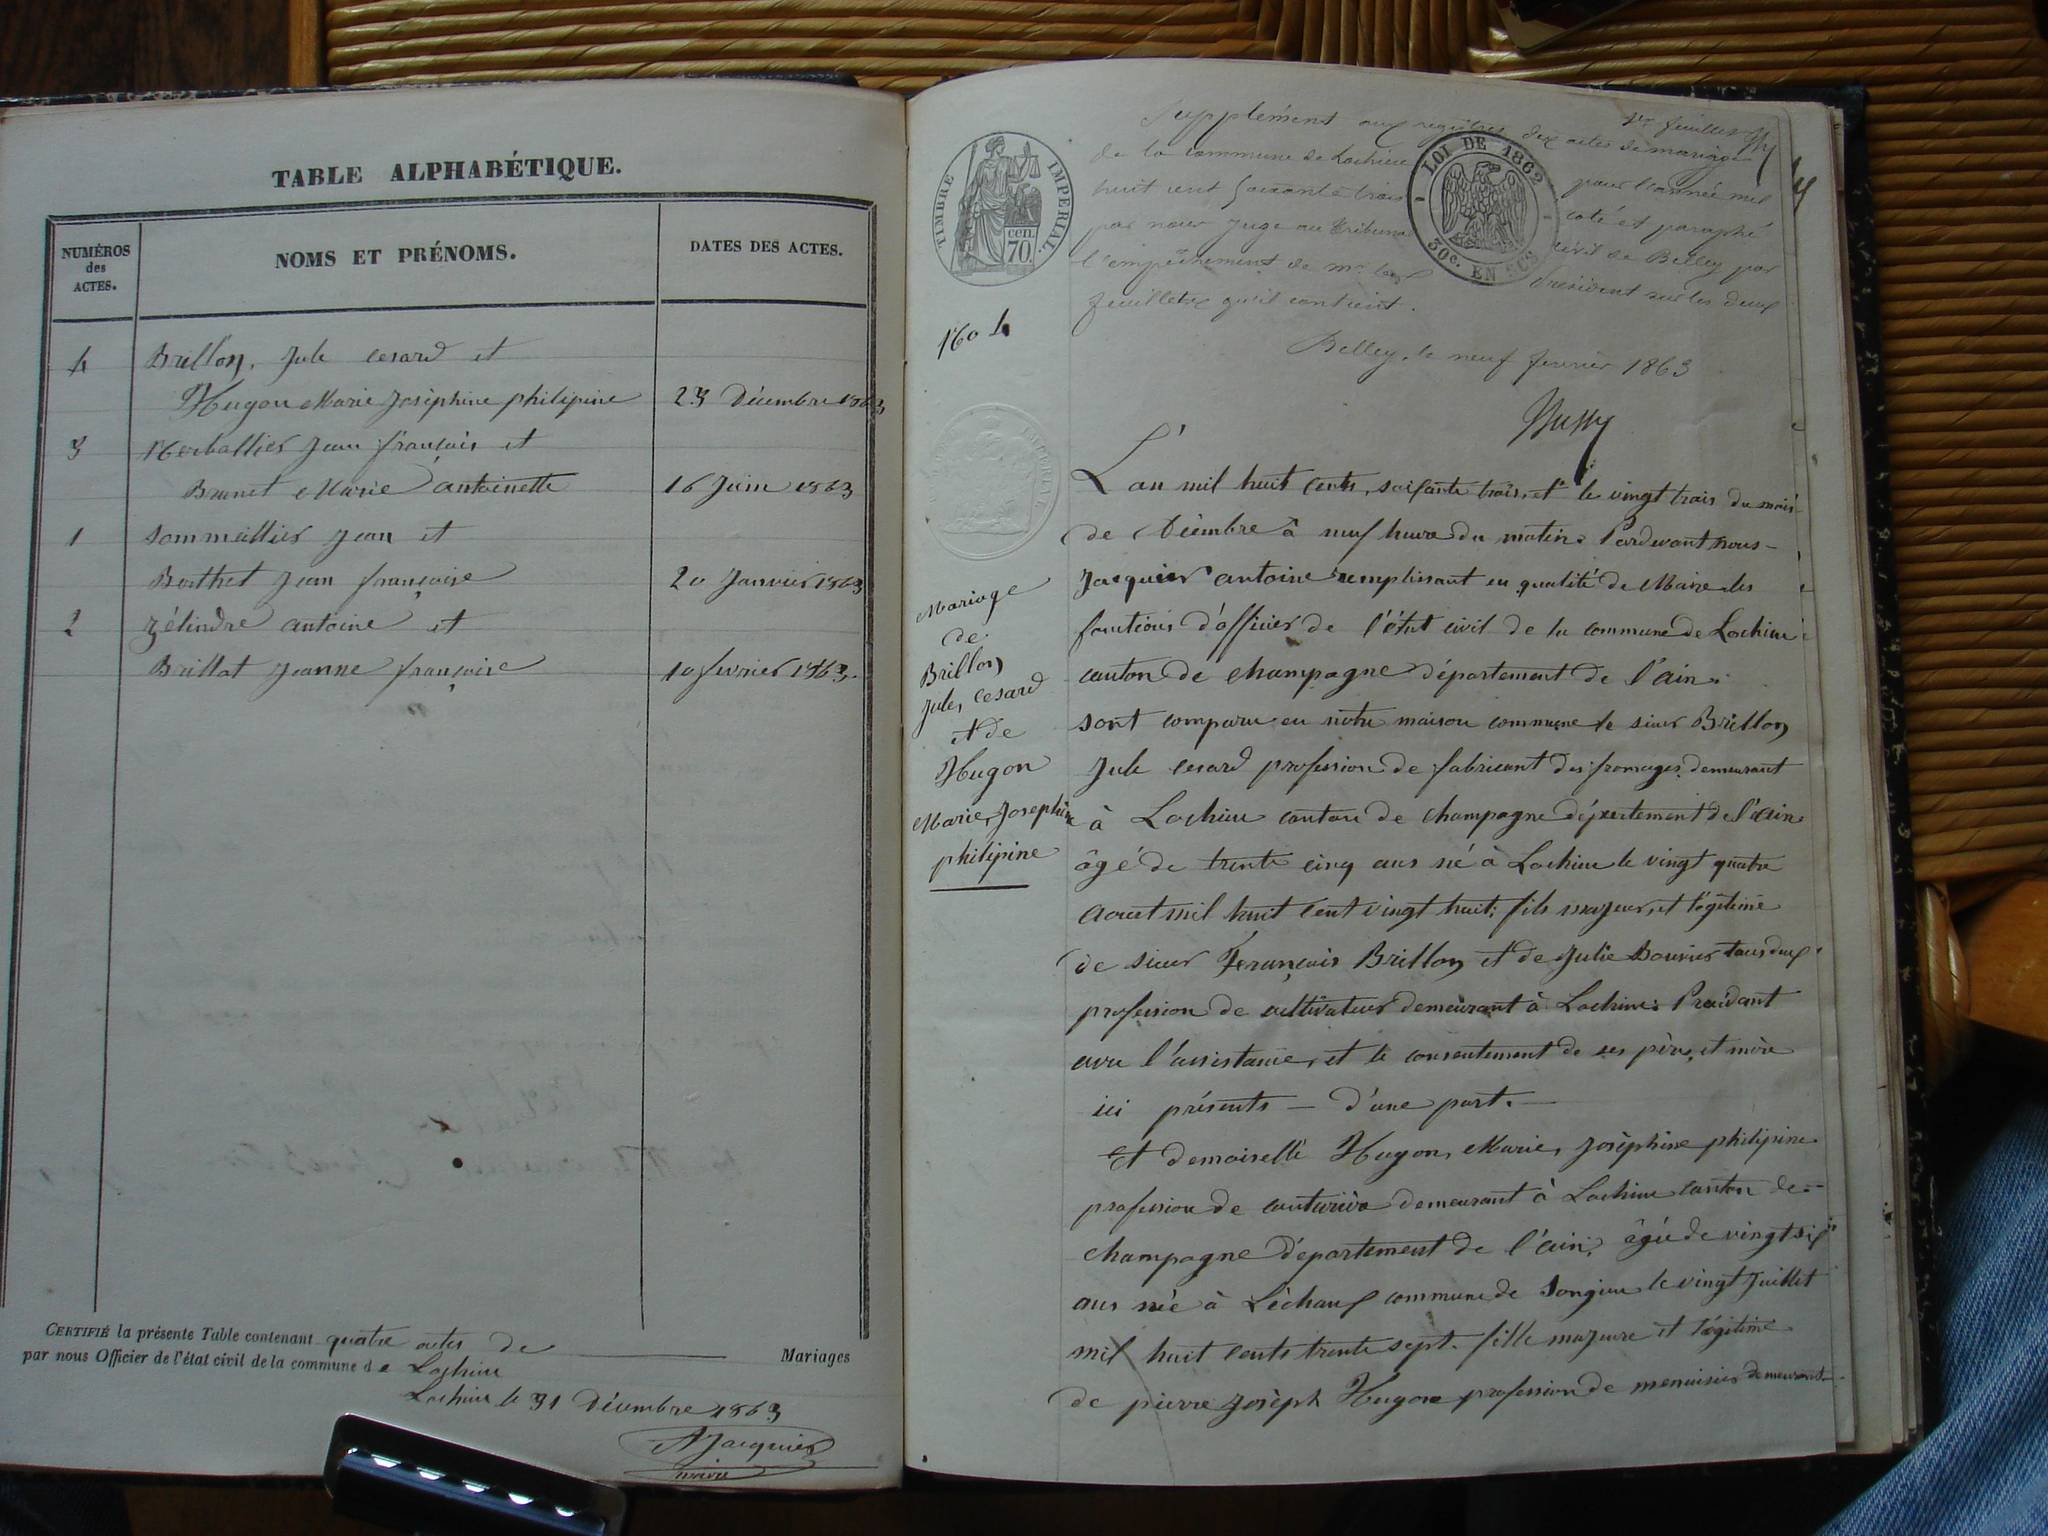 TABLE ALPHABÉTIQUE.
NUMÉROS des ACTES.
NOMS ET PRÉNOMS.
DATES DES ACTES.
4 Brillon, Jule cesard et
Hugon Marie Joséphine philipine 23 Décembre 1863
3 Herballier Jean français et
Brunet Marie antoinette 16 Juin 1863
1 Sommeillier Jean et
Berthet Jean françoise 20 Janvier 1863
2 Zélindre antoine et
Brillat Jeanne françoise 10 février 1863.
CERTIFIÉ la présente Table contenant quatre actes de Mariages
par nous Officier de l'état civil de la commune de Lochieu
Lochieu le 31 Décembre 1863
A Jacquier
maire
TIMBRE IMPÉRIAL.
CEN. 70.
LOI DE 1862
30c. EN SUS
1er feuillet
Supplément aux registres des actes de mariage
de la commune de Lochieu pour l'année mil
huit cent soixante trois coté et paraphé
par nous Juge au tribunal civil de Belley par
l'empêchement de mr. le Président sur les deux
feuillets qu'il contient.
Belley, le neuf fevrier 1863
No 4
Mariage
de
Brillon
Jule, cesard
et de
Hugon
Marie, Josephine
philipine
L'an mil huit cents, soixante trois, et le vingt trois du mois
de Décembre à neuf heure du matin. Pardevant nous
Jacquier antoine remplissant en qualité de Maire les
fonctions d'officier de l'état civil de la commune de Lochieu
canton de champagne département de l'ain.
sont comparu en notre maison commune le sieur Brillon
Jule cesard profession de fabricant des fromages demeurant
à Lochieu canton de champagne département de l'ain
âgé de trente cinq ans né à Lochieu le vingt quatre
aout mil huit cent vingt huit; fils majeur, et légitime
de sieur François Brillon et de Julie Bouvier tous deux
profession de cultivateur demeurant à Lochieu: Procédant
avec l'assistance, et le consentement de ses père, et mère
ici présents — d'une part. —
Et demoiselle Hugon, Marie, Joséphine philipine
profession de couturière demeurant à Lochieu canton de
champagne département de l'ain, âgée de vingt six
ans née à Léchaux commune de Songieu le vingt Juillet
mil huit cents trente sept. fille majeure et légitime
de pierre Joséph Hugon profession de menuisier demeurant